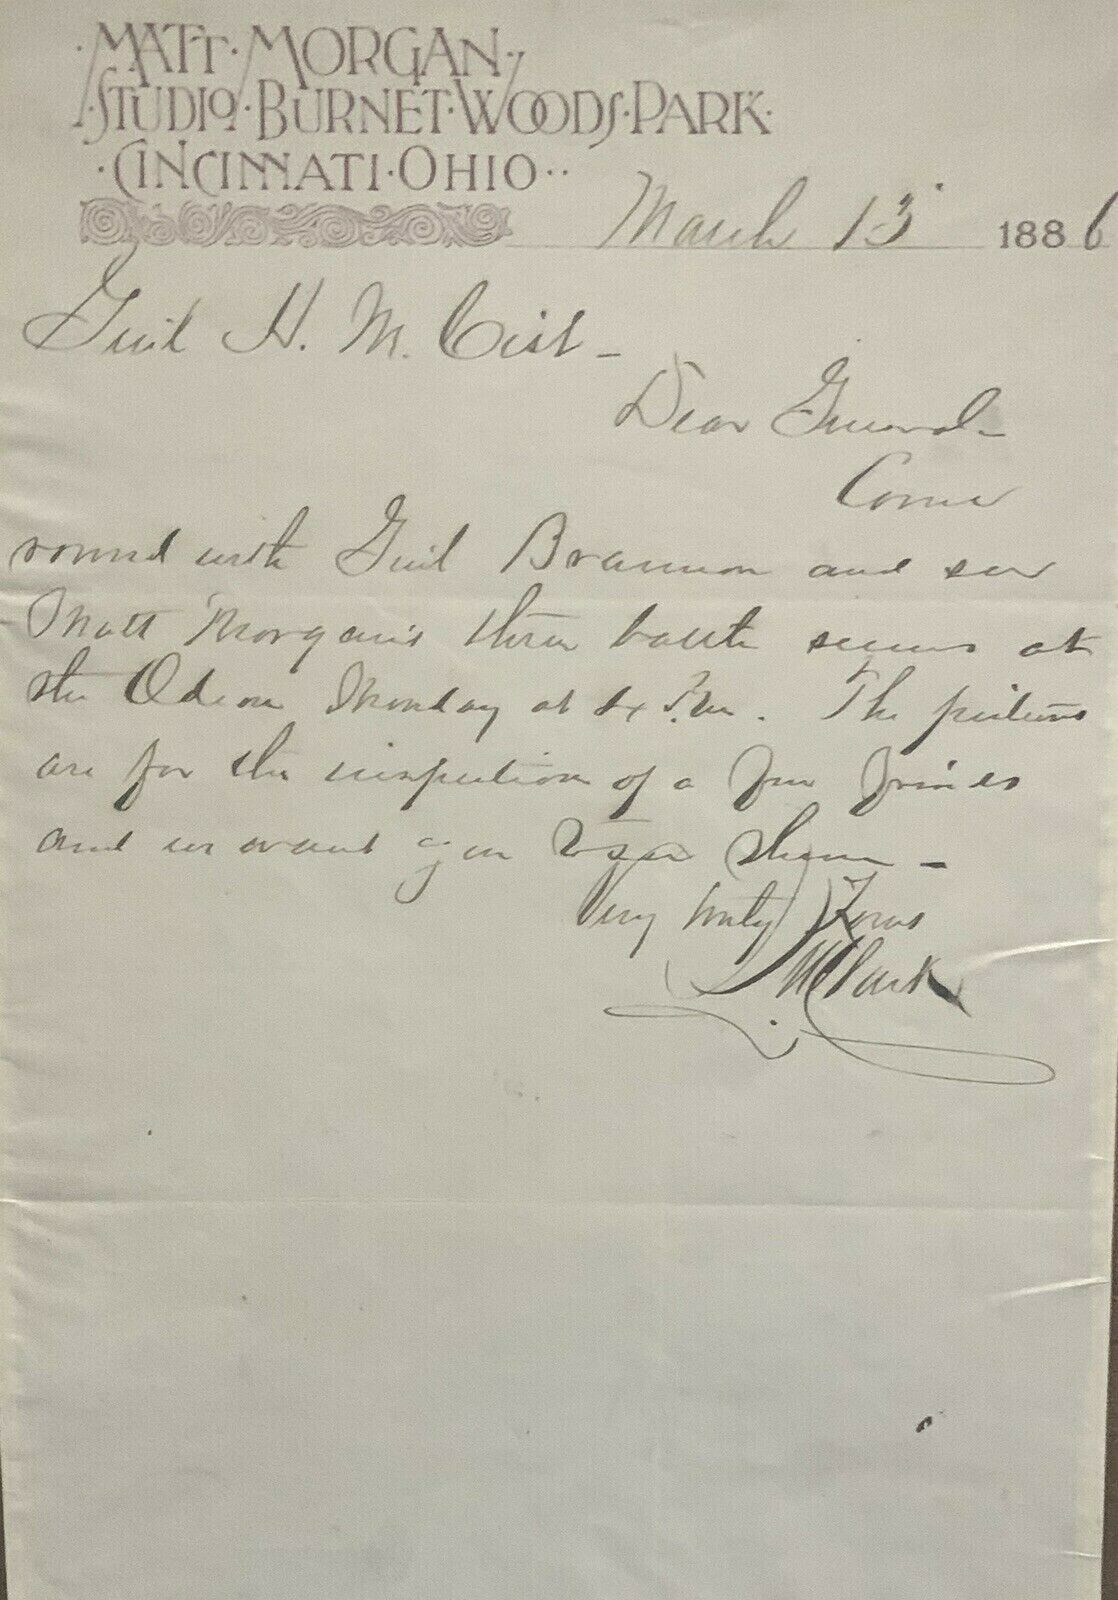 MATT·MORGAN·
·STUDIO·BURNET·WOODS·PARK·
·CINCINNATI·OHIO··
March 13 1886
Genl H. M. Cist -
Dear General -
Come
round with Genl Brannon and see
Matt Morgan's three battle scenes at
the Odeon Monday at 4 P.M. The pictures
are for the inspection of a few friends
and we want you to see them -
Very truly Yours